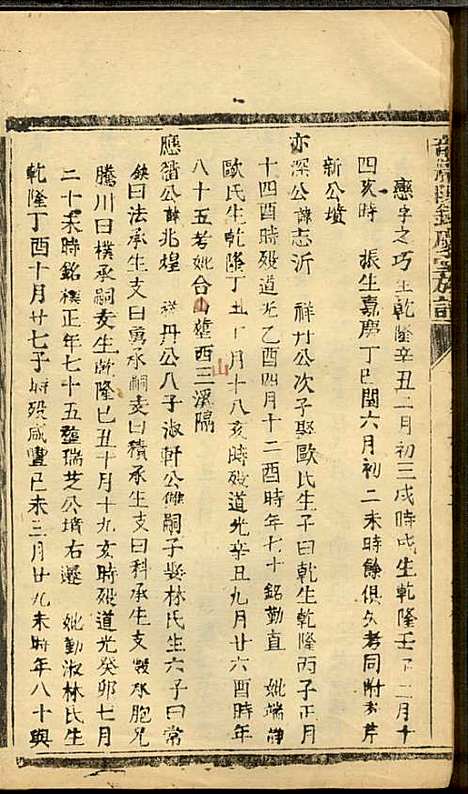 戀字之巧生乾隆辛丑二月初三戌時成生乾隆壬二月十
四亥時 振生嘉慶丁巳閏六月初二未時餘俱欠考同附芹
新公墳
亦深公諱志沂 祥丹公次子娶歐氏生子曰乾生乾隆丙子正月
十四酉時歿道光乙酉四月十二酉時年七十銘勤直 妣端静
歐氏生乾隆丁丑十月十八亥時歿道光辛丑九月廿六酉時年
八十五考妣合山塟西三溪隔
山
應猶公諱兆煌 祥丹公八子淑軒公嗣子娶林氏生六子曰常
鈇曰法承生支曰寓承嗣支曰積承生支曰科承生支承胞兄
騰川曰樸承嗣支生乾隆己丑十月十九亥時歿道光癸卯七月
二十未時銘樸正年七十五塟瑞芝公墳右邊 妣勤淑林氏生
乾隆丁酉十月廿七子時歿咸豐己未三月廿九未時年八十與
族譜